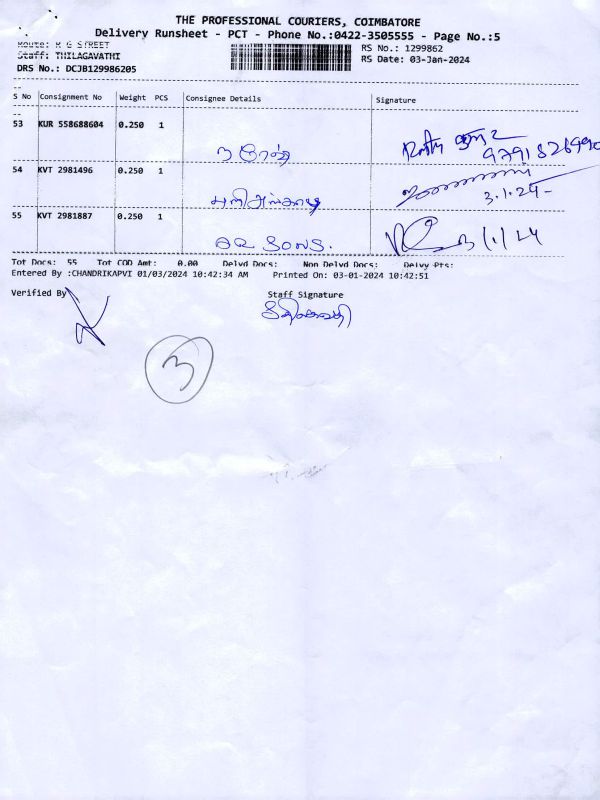 THE PROFESSIONAL COURIERS, COIMBATORE
Delivery Runsheet - PCT - Phone No.:0422-3505555 - Page No.:5
Route: K G STREET
Staff: THILAGAVATHI
DRS No.: DCJB129986205
RS No.: 1299862
RS Date: 03-Jan-2024
S No Consignment No Weight PCS Consignee Details Signature
53 KUR 558688604 0.250 1
54 KVT 2981496 0.250 1
3.1.24-
55 KVT 2981887 0.250 1
AR SONS. 3/1/24
Tot Docs: 55 Tot COD Amt: 0.00 Delvd Docs: Non Delvd Docs: Delvy Pts:
Entered By :CHANDRIKAPVI 01/03/2024 10:42:34 AM Printed On: 03-01-2024 10:42:51
Verified By Staff Signature
3